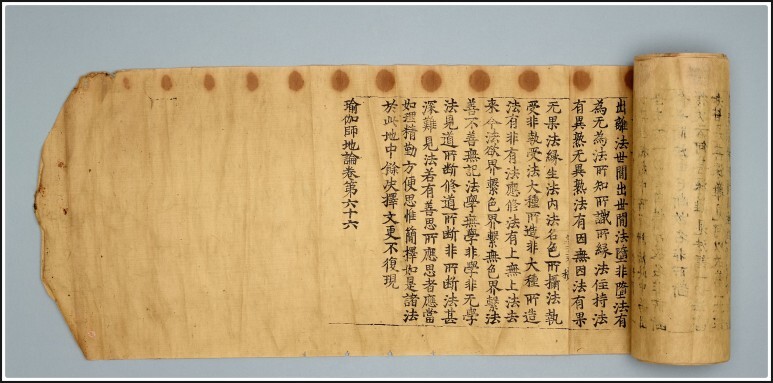 出離法世間出世間法墮非墮法有
為无為法所知所識所緣法住持法
有異熟无異熟法有因無因法有果
无果法緣生法內法名色所攝法執
受非執受法大種所造非大種所造
法有非有法應修法有上無上法去
來今法欲界繫色界繫無色界繫法
善不善無記法學無學非學非无學
法見道所断修道所断非所断法甚
深難見法若有善思所應思者應當
如理精勤方便思惟簡擇如是諸法
於此地中餘决擇文更不復現
瑜伽師地論卷第六十六